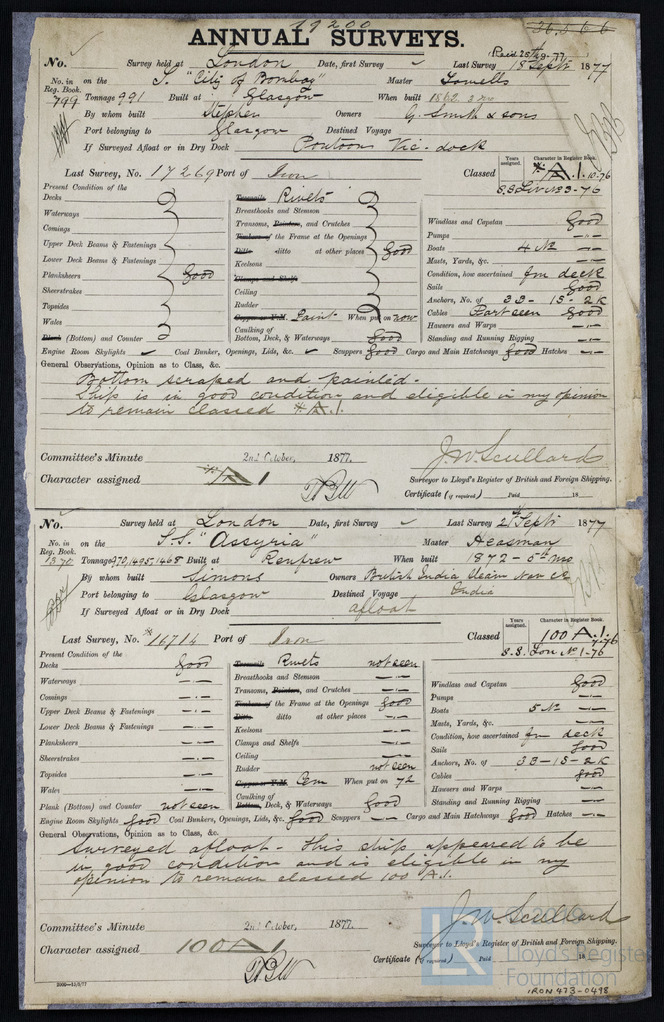 19200
ANNUAL SURVEYS.
No. Survey held at London Date, first Survey Last Survey 18 Sept 1877
Recd 25th 9.77
No. in Reg. Book. on the S. "City of Bombay" Master Lowells
799 Tonnage 991 Built at Glasgow When built 1862 3 mo
By whom built Stephen Owners G. Smith & sons
Port belonging to Glasgow Destined Voyage
If Surveyed Afloat or in Dry Dock Pontoon Vic. dock
Last Survey, No. 17269 Port of Iron Classed
Years assigned. Character in Register Book.
A.1. 10-76
Present Condition of the
Decks
Waterways
Comings
Upper Deck Beams & Fastenings
Lower Deck Beams & Fastenings
Planksheers Good
Sheerstrakes
Topsides
Wales
(Bottom) and Counter
Treenails Rivets
Breasthooks and Stemson
Transoms, Pointers, and Crutches
Timbers of the Frame at the Openings
Ditto ditto at other places Good
Keelsons
Clamps and Shelfs
Ceiling
Rudder
Copper or Y.M. Paint When put on now
Caulking of Bottom, Deck, & Waterways Good
Windlass and Capstan Good
Pumps
Boats 4 No
Masts, Yards, &c.
Condition, how ascertained fm deck
Sails Good
Anchors, No. of 3B - 1S - 2K
Cables Part seen Good
Hawsers and Warps
Standing and Running Rigging
Engine Room Skylights Coal Bunker, Openings, Lids, &c. Scuppers Good Cargo and Main Hatchways Good Hatches
General Observations, Opinion as to Class, &c.
Bottom scraped and painted.
Ship is in good condition and eligible in my opinion
to remain classed A.1.
Committee's Minute 2nd October, 1877.
Character assigned A 1
J. W. Scullard
Surveyor to Lloyd's Register of British and Foreign Shipping.
Certificate (if required) Paid 18
No. Survey held at London Date, first Survey Last Survey 21 Sept 1877
No. in Reg. Book. on the S.S. "Assyria" Master Heasman
1370 Tonnage 970, 1495, 1468 Built at Renfrew When built 1872 - 5th mo
By whom built Simons Owners British India Steam Nav Co
Port belonging to Glasgow Destined Voyage India
If Surveyed Afloat or in Dry Dock afloat
Last Survey, No. 16714 Port of Iron Classed
Years assigned. Character in Register Book.
100 A.1. 7-76
S.S. Lon No 1-76
Present Condition of the
Decks good
Waterways
Comings
Upper Deck Beams & Fastenings
Lower Deck Beams & Fastenings
Planksheers
Sheerstrakes
Topsides
Wales
Plank (Bottom) and Counter not seen
Treenails Rivets not seen
Breasthooks and Stemson
Transoms, Pointers, and Crutches
Timbers of the Frame at the Openings good
Ditto ditto at other places
Keelsons
Clamps and Shelfs
Ceiling
Rudder not seen
Copper or Y.M. Cem When put on 72
Caulking of Bottom, Deck, & Waterways Good
Windlass and Capstan Good
Pumps
Boats 5 No
Masts, Yards, &c.
Condition, how ascertained fm deck
Sails Good
Anchors, No. of 3B - 1S - 2K
Cables Good
Hawsers and Warps
Standing and Running Rigging
Engine Room Skylights good Coal Bunkers, Openings, Lids, &c. Good Scuppers Cargo and Main Hatchways Good Hatches
General Observations, Opinion as to Class, &c.
Surveyed afloat - This ship appeared to be
in good condition and is eligible in my
opinion to remain classed 100 A.1.
Committee's Minute 2nd October, 1877.
Character assigned 100 A 1
J. W. Scullard
Surveyor to Lloyd's Register of British and Foreign Shipping.
Certificate (if required) Paid 18
Lloyd's Register
Foundation
IRON 473-0498